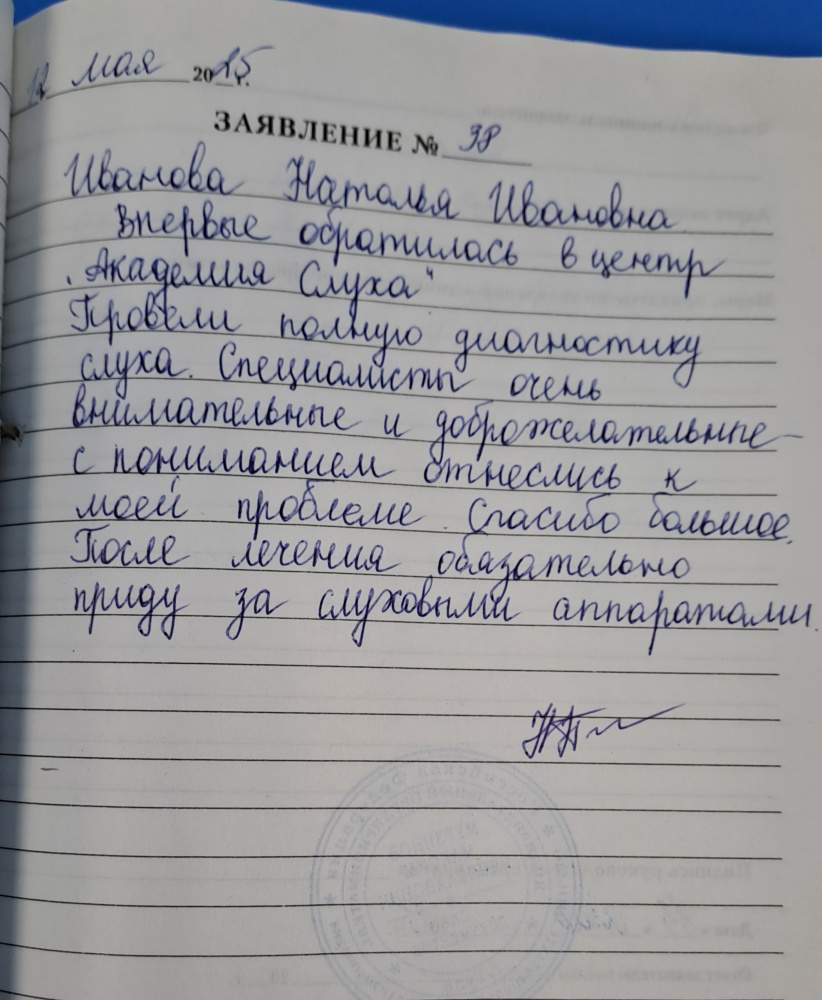 12 мая 2025 г.
ЗАЯВЛЕНИЕ № 38
Иванова Наталья Ивановна
впервые обратилась в центр
"Академия Слуха"
Провели полную диагностику
слуха. Специалисты очень
внимательные и доброжелательные –
с пониманием отнеслись к
моей проблеме. Спасибо большое.
После лечения обязательно
приду за слуховыми аппаратами.